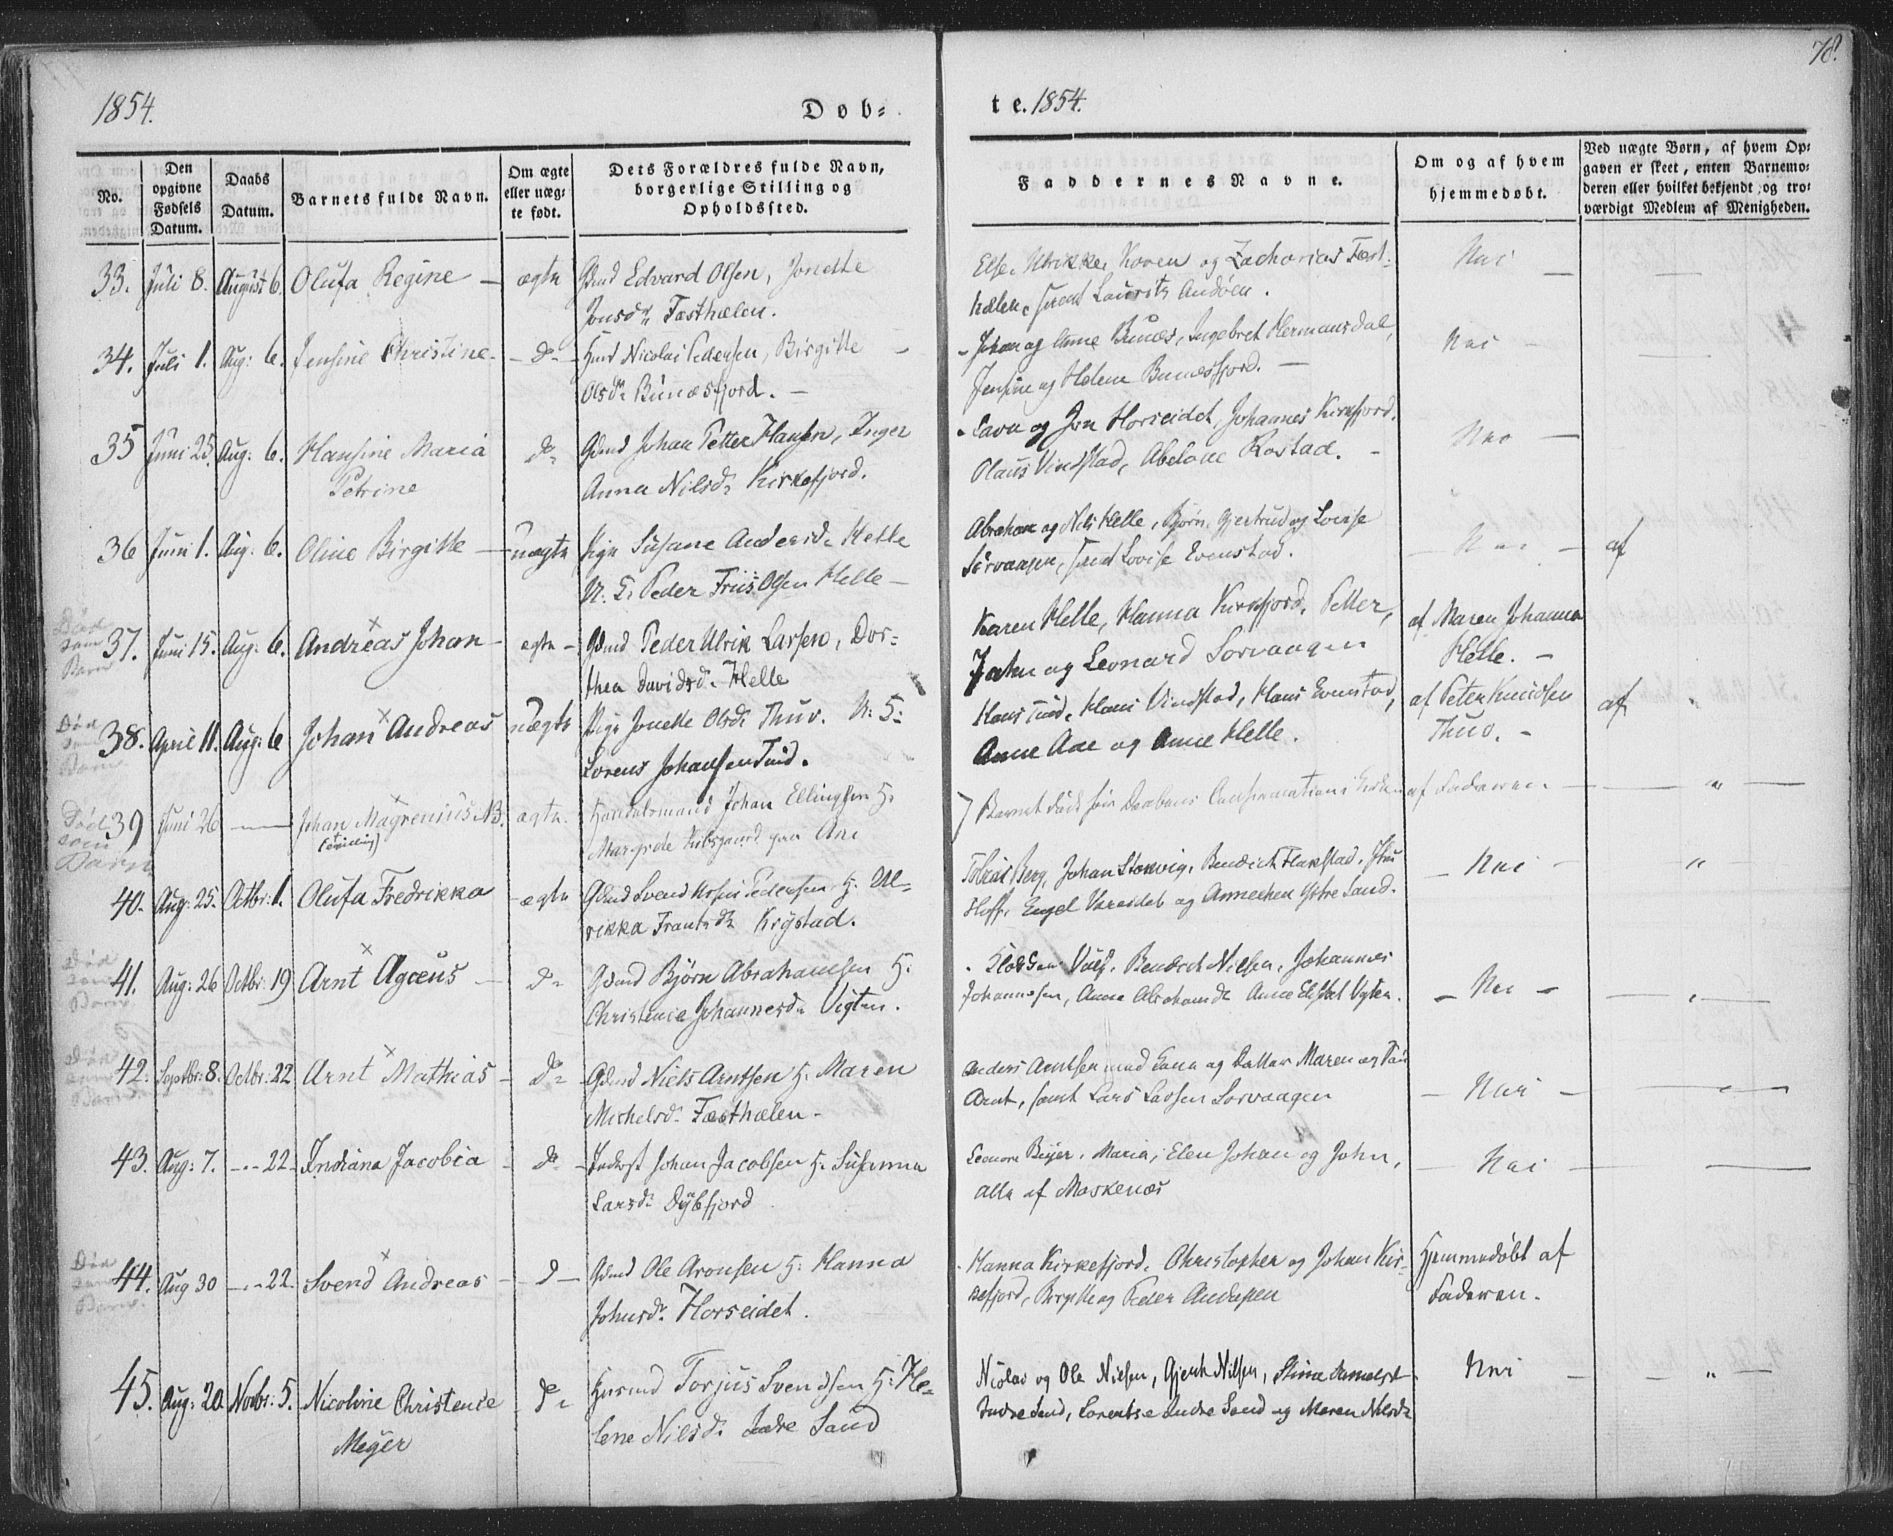 1854.
Døb-
te. 1854.
78.
No.
Den opgivne Fødsels Datum.
Daabs Datum.
Barnets fulde Navn.
Om ægte eller uægte født.
Dets Forældres fulde Navn, borgerlige Stilling og Opholdssted.
Faddernes Navne.
Om og af hvem hjemmedøbt.
Ved uægte Børn, af hvem Opgaven er skeet, enten Barnemoderen eller hvilket bekjendt og troværdigt Medlem af Menigheden.
33. Juli 8. August 6. Olufa Regine — ægte Gdmd Edvard Olsen, Jonette
Jonsdr Fæsthælen.
Else, Ulrikke, Koren og Zacharias Fæst-
hælen, samt Laurits Andøen.
Nei —
34. Juli 1. Aug: 6. Jensine Christine — do — Huusmd Nicolai Pedersen, Birgitte
Olsdr Bunæsfjord. —
Johan og Anne Bunæs, Ingebret Hermansdal,
Jensine og Helene Bunæsfjord. —
Nei —
35 Juni 25. Aug: 6. Hansine Maria
Petrine
do Gdmd Johan Petter Hansen, Inger
Anna Nilsdr Kirkefjord.
og Jon Horseidet, Johannes Kirkfjord.
Olaus Vindstad, Abelone Rostad. —
Nei —
36 Juni 1. Aug: 6. Oline Birgitte — uægte Pige Susane Andersdr Helle
U. F. Peder Friis Olsen Helle —
Abraham og Nils Helle, Bjørn, Gjertrud og Lovise
Sørvaagen, samt Lovise Evenstad.
— Nei — af
Død
samme
Barn
37. Juni 15. Aug: 6. Andreas Johan — ægte — Gdmd Peder Ulrik Larsen, Dor-
thea Davidsdr Helle
Karen Helle, Hanna Kirkfjord, Petter,
John og Leonard Sørvaagen
af Maren Johanna
Helle. —
Død
Barn
38. April 11. Aug: 6 Johan Andreas uægte Pige Jonette Olsdr Thuv. U: F:
Lorens Johansen Tind.
Hans Tind, Hans Vindstad, Hans Evenstad,
Anne Aae og Anne Helle.
af Peter Knudsen
Thuv. — af
Død
som
Barn
39 Juni 26 — Johan Magrenius NB. ægte. Handelsmand Johan Ellingsen H:
Margrete Kilsgaard paa
Barnet døde før Daabens Confirmation i Kirken af Faderen. —
40. Aug: 25. Octbr: 1. Olufa Fredrikka — ægte Gdmd Svend Pedersen H: Ul-
rikka Frantsdr Krystad.
Tobias Berg, Johan Storvig, Bendick Flakstad,
Hoff, Engel Vareidet og Annechen Ystre Sand.
— Nei —
Død
Barn
41. Aug: 26 Octbr: 19 Arnt Agæus — do Gdmd Bjørn Abrahamsen H:
Christence Johannesdr Vigten.
Bendick Nielsen, Johannes
Johannesen, Anne Abrahamdr Anne Vigten.
— Nei —
Død
Barn
42. Septbr: 8. Octbr: 22 Arnt Mathias — do — Gdmd Niels Arntsen H: Maren
Michelsdr Fæsthælen —
Anders Arntsen med Kone og Datter Maren og
Arnt, samt Lars Larsen Sørvaagen
— Nei —
43. Aug: 7. — 22 — Indiana Jacobia — do — Inderst Johan Jacobsen H: Susanna
Larsdr Dybfjord
Leonore Beyer, Maria, Elen Johan og John,
alle af Moskenæs
— Nei —
Død
Barn.
44. Aug 30 — 22. Svend Andreas — do — Gdmd Ole Aronsen H: Hanna
Johnsdr Horseidet.
Hanna Kirkefjord, Christopher og Johan Kir-
kefjord, Birgitte og Peder Andersen
Hjemmedøbt af
Faderen.
45. Aug: 20. Novbr: 5. Nicoline Christence
Meyer
do Huusmd Torjus Svendsen H: He-
lene Nilsdr Indre Sand
Nicolai og Ole Nielsen, Gjert Nilsen,
Indre Sand, Lorentse Indre Sand og Maren Nilsdr
Nei —